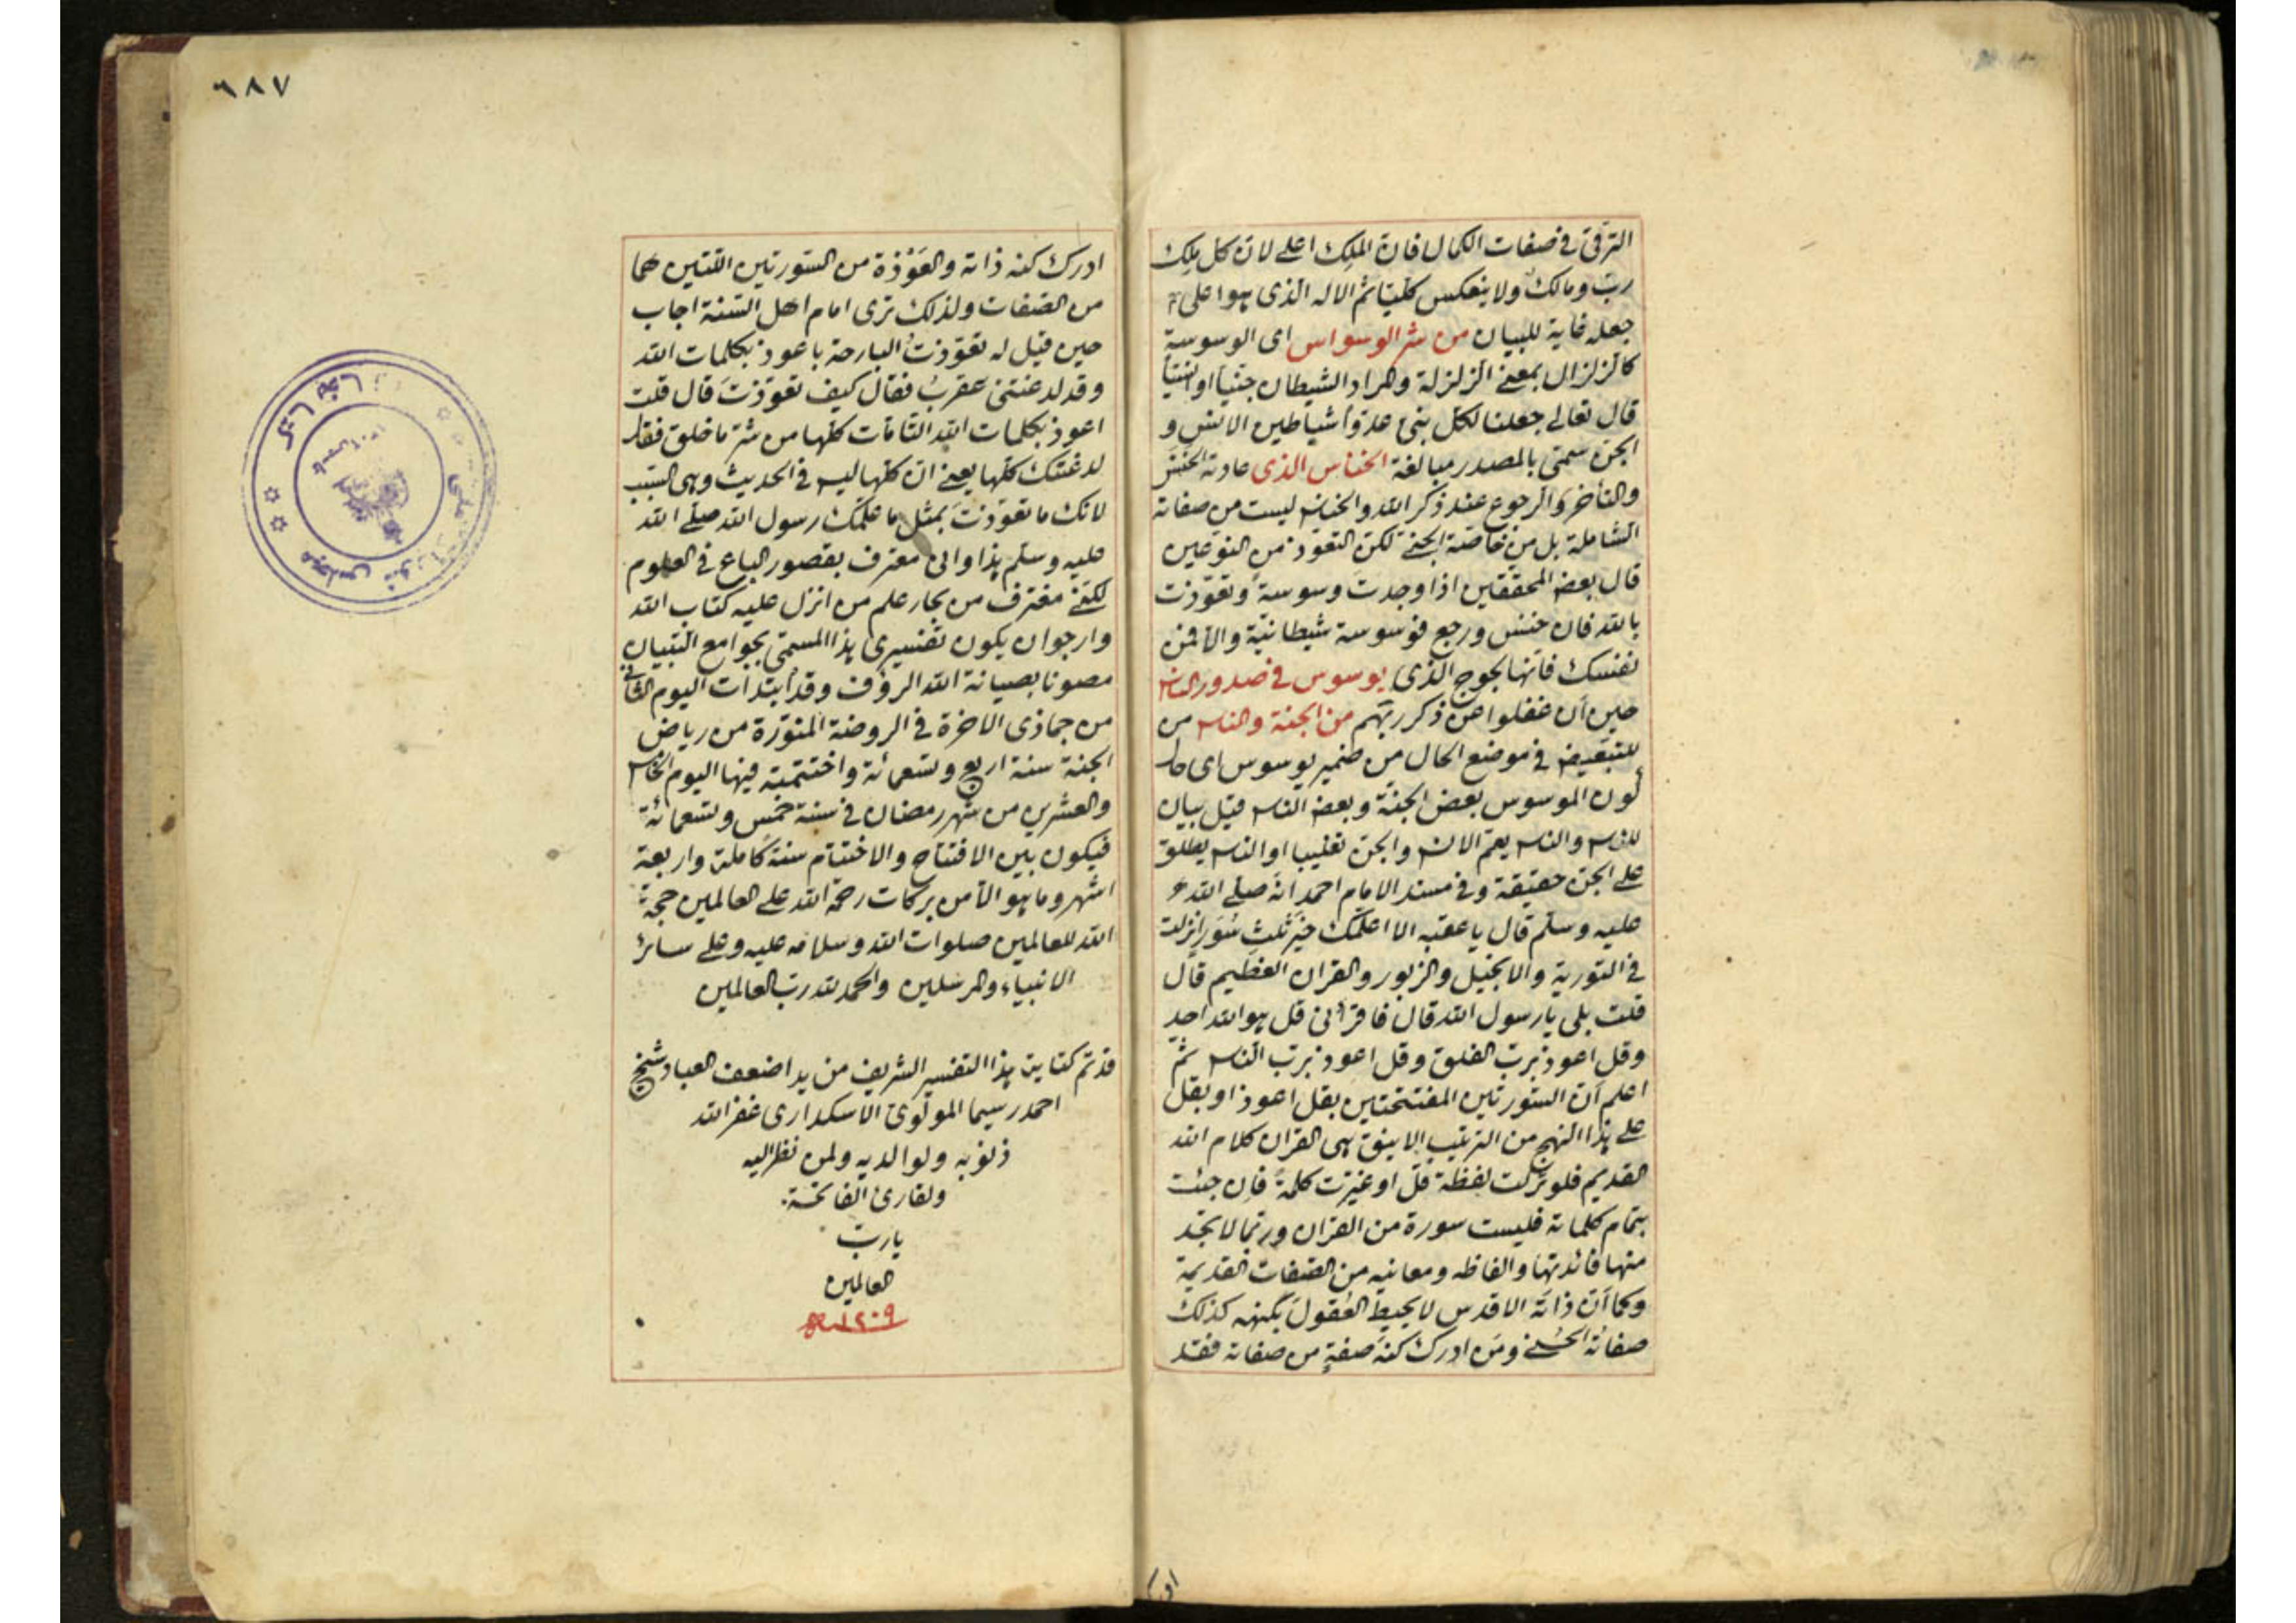 الترقی فی صفات الکمال فان الملِك اعلی لان کل ملِك
ربّ ومالك ولا ینعکس کلیّا ثم الاله الذی هو اعلی
جعله غایة للبیان من شر الوسواس ای الوسوسة
کالزلزال بمعنی الزلزلة والمراد الشیطان جنّیاً او انسیّاً
قال تعالی جعلنا لکل نبیّ عدوّاً شیاطین الانس و
الجن سمّی بالمصدر مبالغة الخناس الذی عادته الخنس
والتأخر والرجوع عند ذکر الله والخناس لیست من صفاته
الشاملة بل من خاصّة الجنّی لکن التعوذ من النوعین
قال بعض المحققین اذا وجدت وسوسة وتعوّذت
بالله فان خنس ورجع فوسوسة شیطانیّة والا فمن
نفسك فانها لجوج الذی یوسوس فی صدور الناس
حین ان غفلوا عن ذکر ربّهم من الجنة والناس من
للتبعیض فی موضع الحال من ضمیر یوسوس ای حال
کون الموسوس بعض الجنّة وبعض الناس قیل بیان
للناس والناس یعم الانس والجن تغلیبا او الناس یطلق
علی الجن حقیقة وفی مسند الامام احمد انه صلی الله
علیه وسلم قال یا عقبه الا اعلمك خیر ثلث سُوَر انزلت
فی التوریة والانجیل والزبور والقران العظیم قال
قلت بلی یا رسول الله قال فاقرأنی قل هو الله احد
وقل اعوذ برب الفلق وقل اعوذ برب الناس ثمّ
اعلم ان السّورتین المفتتحتین بقل اعوذ او بقل
علی هذا النهج من الترتیب الانیق هی القران کلام الله
القدیم فلو ترکت لفظة قل او غیّرت کلمةً فان جئت
بتمام کلماته فلیست سورة من القران وربّما لا تجد
منها فائدتها والفاظه ومعانیه من الصّفات القدیمة
وکما ان ذاته الاقدس لا یحیط العقول بکنهه کذلك
صفاته الحسنی ومَن ادرك کنه صفةٍ من صفاته فقد
ادر
٦٨٧
ادرك کنه ذاته والعَوْذة من السّورتین اللتین هما
من الصّفات ولذلك تری امام اهل السّنة اجاب
حین قیل له تعوّذتُ البارحة باعوذ بکلمات الله
وقد لدغتنی عقربٌ فقال کیف تعوّذتَ قال قلت
اعوذ بکلمات الله التّامّات کلّها من شرّ ما خلق فقال
لدغتك کلّها یعنی ان کلّها لیس فی الحدیث وهی السّبب
لانك ما تعوّذتَ بمثل ما علّمك رسول الله صلی الله
علیه وسلم هذا وانی معترف بقصور الباع فی العلوم
لکنّی مغترف من بحار علم من انزل علیه کتاب الله
وارجو ان یکون تفسیری هذا المسمّی بجوامع التبیان
مصونا بصیانة الله الرؤف وقد ابتدات الیوم الثانی
من جمادی الاخرة فی الروضة المنوّرة من ریاض
الجنة سنة اربع وتسعمائة واختتمته فیها الیوم الخامس
والعشرین من شهر رمضان فی سنة خمس وتسعمائة
فیکون بین الافتتاح والاختتام سنة کاملة واربعة
اشهر وما هو الا من برکات رحمة الله علی العالمین حجة
الله للعالمین صلوات الله وسلامه علیه وعلی سائر
الانبیاء والمرسلین والحمد لله رب العالمین
قد تم کتابة هذا التفسیر الشریف من ید اضعف العباد شیخ
احمد رسیما المولوی الاسکداری غفر الله
ذنوبه ولوالدیه ولمن نظر الیه
ولقارئ الفاتحة
یا ربّ
العالمین
١٢٠٩